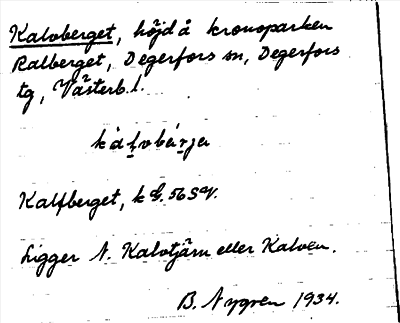 Kalvberget, höjd å kronoparken
Ralberget, Degerfors sn, Degerfors
tg, Västerb. l.
Kalfberget, k
Ligger N. Kalvtjärn eller Kalven.
B. Nygren 1934.